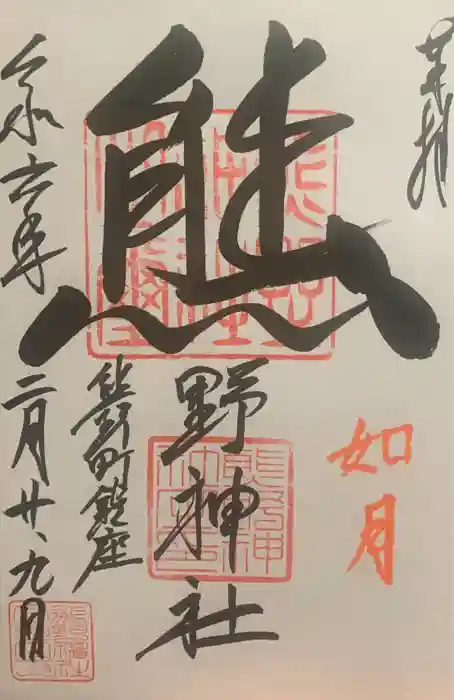 奉拝
如月
熊野神社
熊野町鎮座
令和六年
二月廿、九日